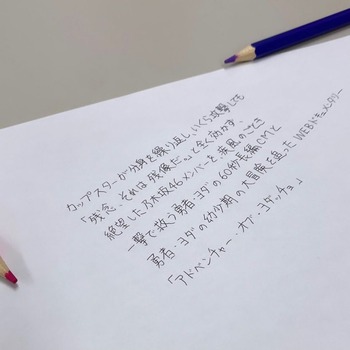 カップスターが分身を繰り返し、いくら攻撃しても
「残念、それは残像だ。」と全く効かず、
絶望した乃木坂46メンバーを疾風のごとき
一撃で救う勇者・ヨダの60秒長編CMと
勇者・ヨダの幼少期の大冒険を追ったWEBドキュメンタリー
「アドベンチャー・オブ・ヨダ・チョ」